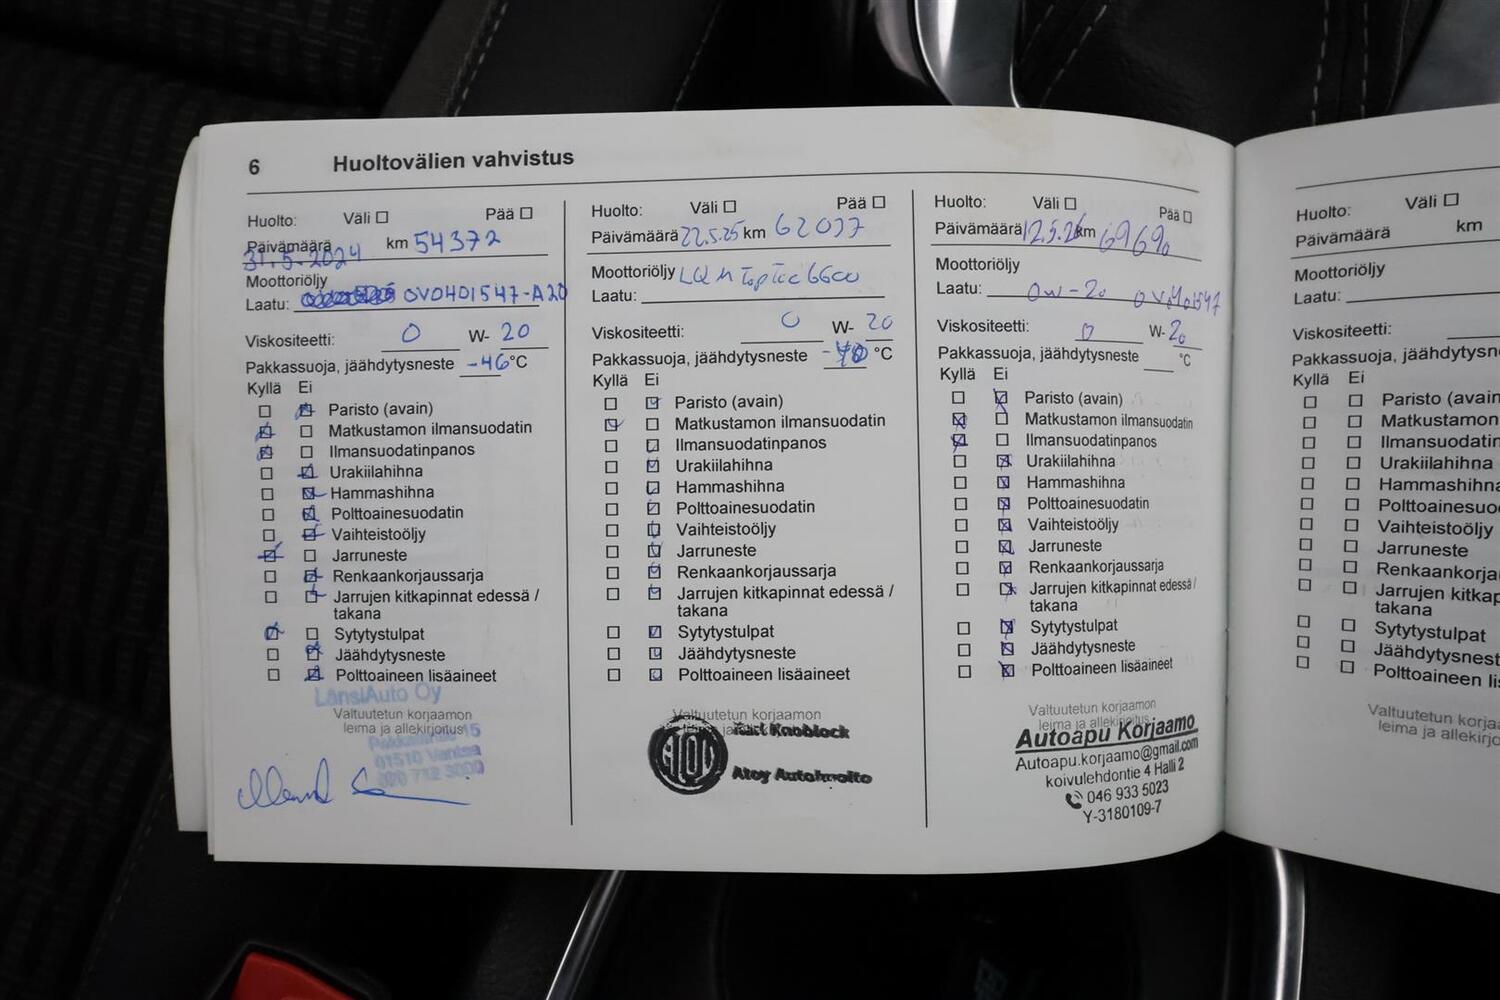 6 Huoltovälien vahvistus
Huolto: Väli Pää
Päivämäärä km 54372
31.5.2024
Moottoriöljy
Laatu: 0V0401547-A20
Viskositeetti: 0 W- 20
Pakkassuoja, jäähdytysneste -46 °C
Kyllä Ei
Paristo (avain)
Matkustamon ilmansuodatin
Ilmansuodatinpanos
Urakiilahihna
Hammashihna
Polttoainesuodatin
Vaihteistoöljy
Jarruneste
Renkaankorjaussarja
Jarrujen kitkapinnat edessä /
takana
Sytytystulpat
Jäähdytysneste
Polttoaineen lisäaineet
LänsiAuto Oy
Valtuutetun korjaamon
leima ja allekirjoitus
15
01510 Vantaa
712 3000
Huolto: Väli Pää
Päivämäärä 22.5.25 km 62077
Moottoriöljy LQM TopTec 6600
Laatu:
Viskositeetti: 0 W- 20
Pakkassuoja, jäähdytysneste °C
Kyllä Ei
Paristo (avain)
Matkustamon ilmansuodatin
Ilmansuodatinpanos
Urakiilahihna
Hammashihna
Polttoainesuodatin
Vaihteistoöljy
Jarruneste
Renkaankorjaussarja
Jarrujen kitkapinnat edessä /
takana
Sytytystulpat
Jäähdytysneste
Polttoaineen lisäaineet
Valtuutetun korjaamon
Knoblock
Atoy Autohuolto
Huolto: Väli Pää
Päivämäärä 12.5.26 km 69690
Moottoriöljy
Laatu: 0w-20
Viskositeetti: 0 W- 20
Pakkassuoja, jäähdytysneste °C
Kyllä Ei
Paristo (avain)
Matkustamon ilmansuodatin
Ilmansuodatinpanos
Urakiilahihna
Hammashihna
Polttoainesuodatin
Vaihteistoöljy
Jarruneste
Renkaankorjaussarja
Jarrujen kitkapinnat edessä /
takana
Sytytystulpat
Jäähdytysneste
Polttoaineen lisäaineet
Valtuutetun korjaamon
leima ja allekirjoitus
Autoapu Korjaamo
Autoapu.korjaamo@gmail.com
koivulehdontie 4 Halli 2
046 933 5023
Y-3180109-7
Huolto: Väli
Päivämäärä km
Moottoriöljy
Laatu:
Viskositeetti:
Pakkassuoja, jäähdytysn
Kyllä Ei
Paristo (avain
Matkustamon
Ilmansuodatin
Urakiilahihna
Hammashihna
Polttoainesuo
Vaihteistoöljy
Jarruneste
Renkaankorja
Jarrujen kitkap
takana
Sytytystulpat
Jäähdytysnest
Polttoaineen li
Valtuutetun korja
leima ja allekirjo